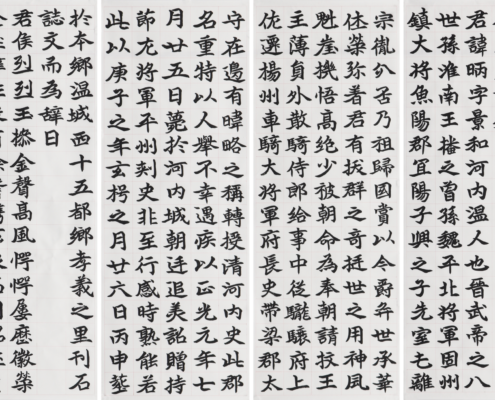 君諱昞字景和河內溫人也晉武帝之八
世孫淮南王播之曾孫魏平北將軍固州
鎮大將魚陽郡宜陽子興之子先室乇離
宗胤分否乃祖歸國賞以今爵弈世承華
休榮弥著君有拔群之奇挺世之用神風
魁崖機悟高絕少被朝命為奉朝請牧王
主薄員外散騎侍郎給事中從驤府上
佐遷揚州車騎大將軍府長史帶梁郡太
守在邊有暐略之稱轉授清河內史此郡
名重特以人舉不幸遇疾以正光元年七
月廿五日薨於河內城朝廷追美詔贈持
節左將軍平州刺史非至行感時熟能若
此以庚子之年玄枵之月廿六日丙申塟
於本鄉溫城西十五都鄉孝義之里刊石
誌文而為辭曰
君侯烈烈王摻金聲高風愕愕屢歷徽榮